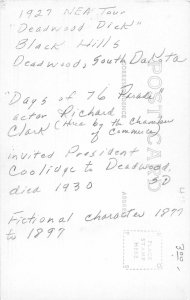 1927 NEA Tour
"Deadwood Dick"
Black Hills
Deadwood, South Dakota
"Days of 76 Parade"
actor Richard
Clark (Hire by the Chamber
of Commerce)
invited President
Coolidge to Deadwood,
SD
died 1930
Fictional character 1877
to 1897
POST CARD
PLACE
STAMP
HERE
300